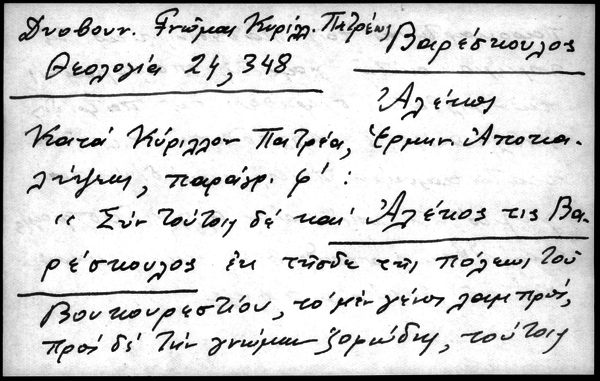 Δυοβουν. Γνῶμαι Κυρίλλ. Πατρέως
Βαρέσκουλος
Θεολογία 24, 348
Ἀλέκος
Κατά Κύριλλον Πατρέα, Ἑρμην. Ἀποκα-
λύψεως, παράγρ. φ΄ :
"Σύν τούτοις δέ καί Ἀλέκος τις Βα-
ρέσκουλος ἐκ τῆσδε τῆς πόλεως τοῦ
Βουκουρεστίου, τό μέν γένος λαμπρός,
πρός δέ τήν γνώμην ζοφώδης, τούτοις